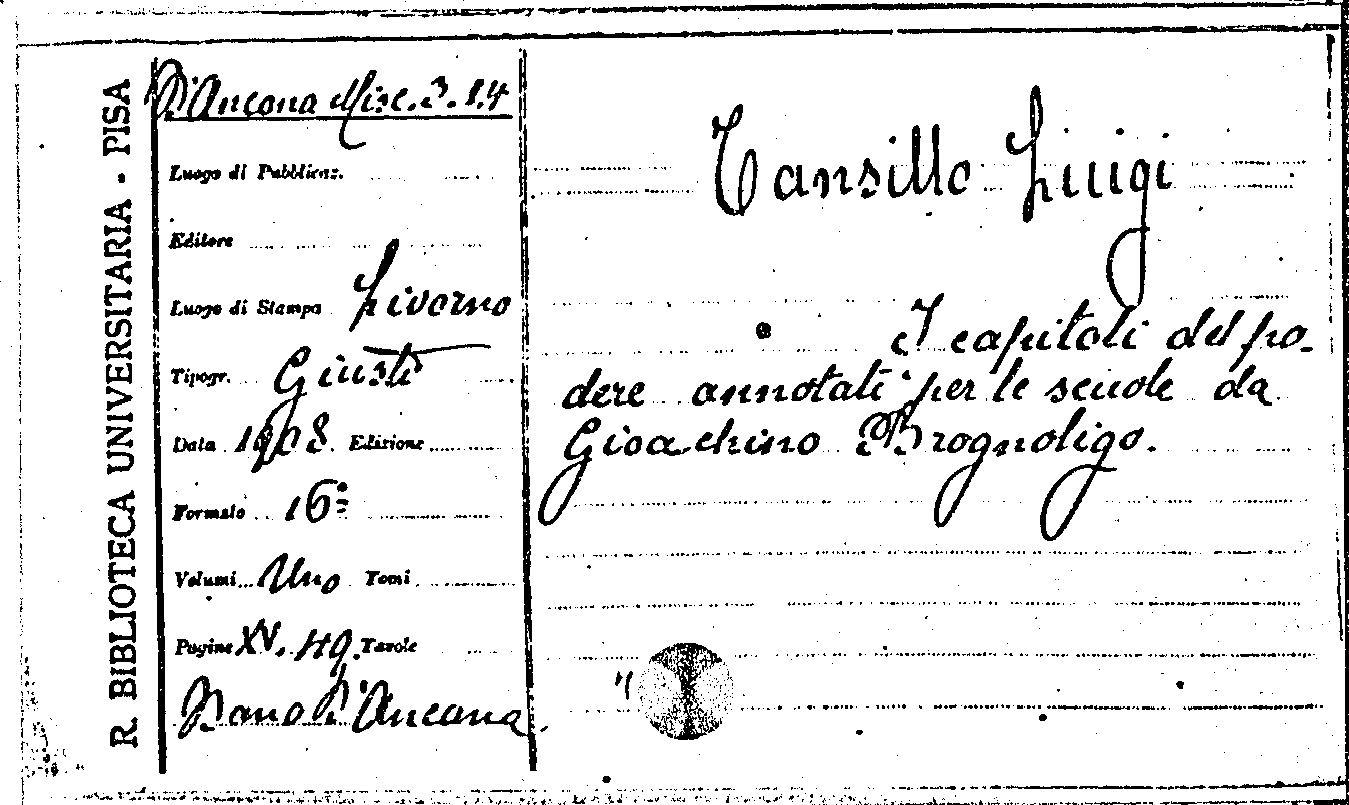 R. BIBLIOTECA UNIVERSITARIA - PISA
D'Ancona Misc. 3. 8.4
Luogo di Pubblicaz.
Editore
Luogo di Stampa Livorno
Tipogr. Giusti
Data 1908. Edizione
Formato 16º
Volumi Uno Tomi
Pagine XV. 49. Tavole
Dono D'Ancona.
Tansillo Luigi
I capitoli del po-
dere annotati per le scuole da
Gioachino Brognoligo.